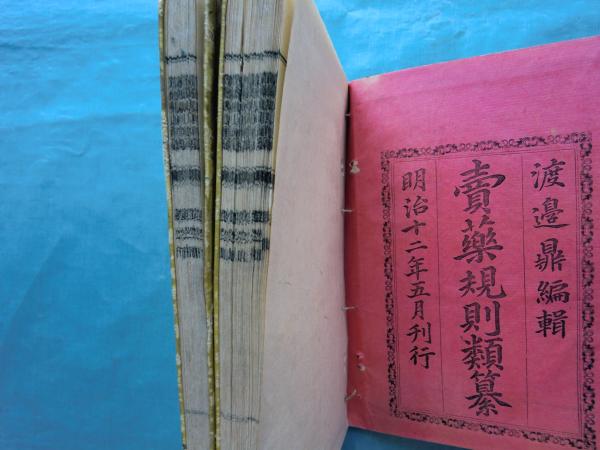 渡邉鼎編輯
賣藥規則類纂
明治十二年五月刊行